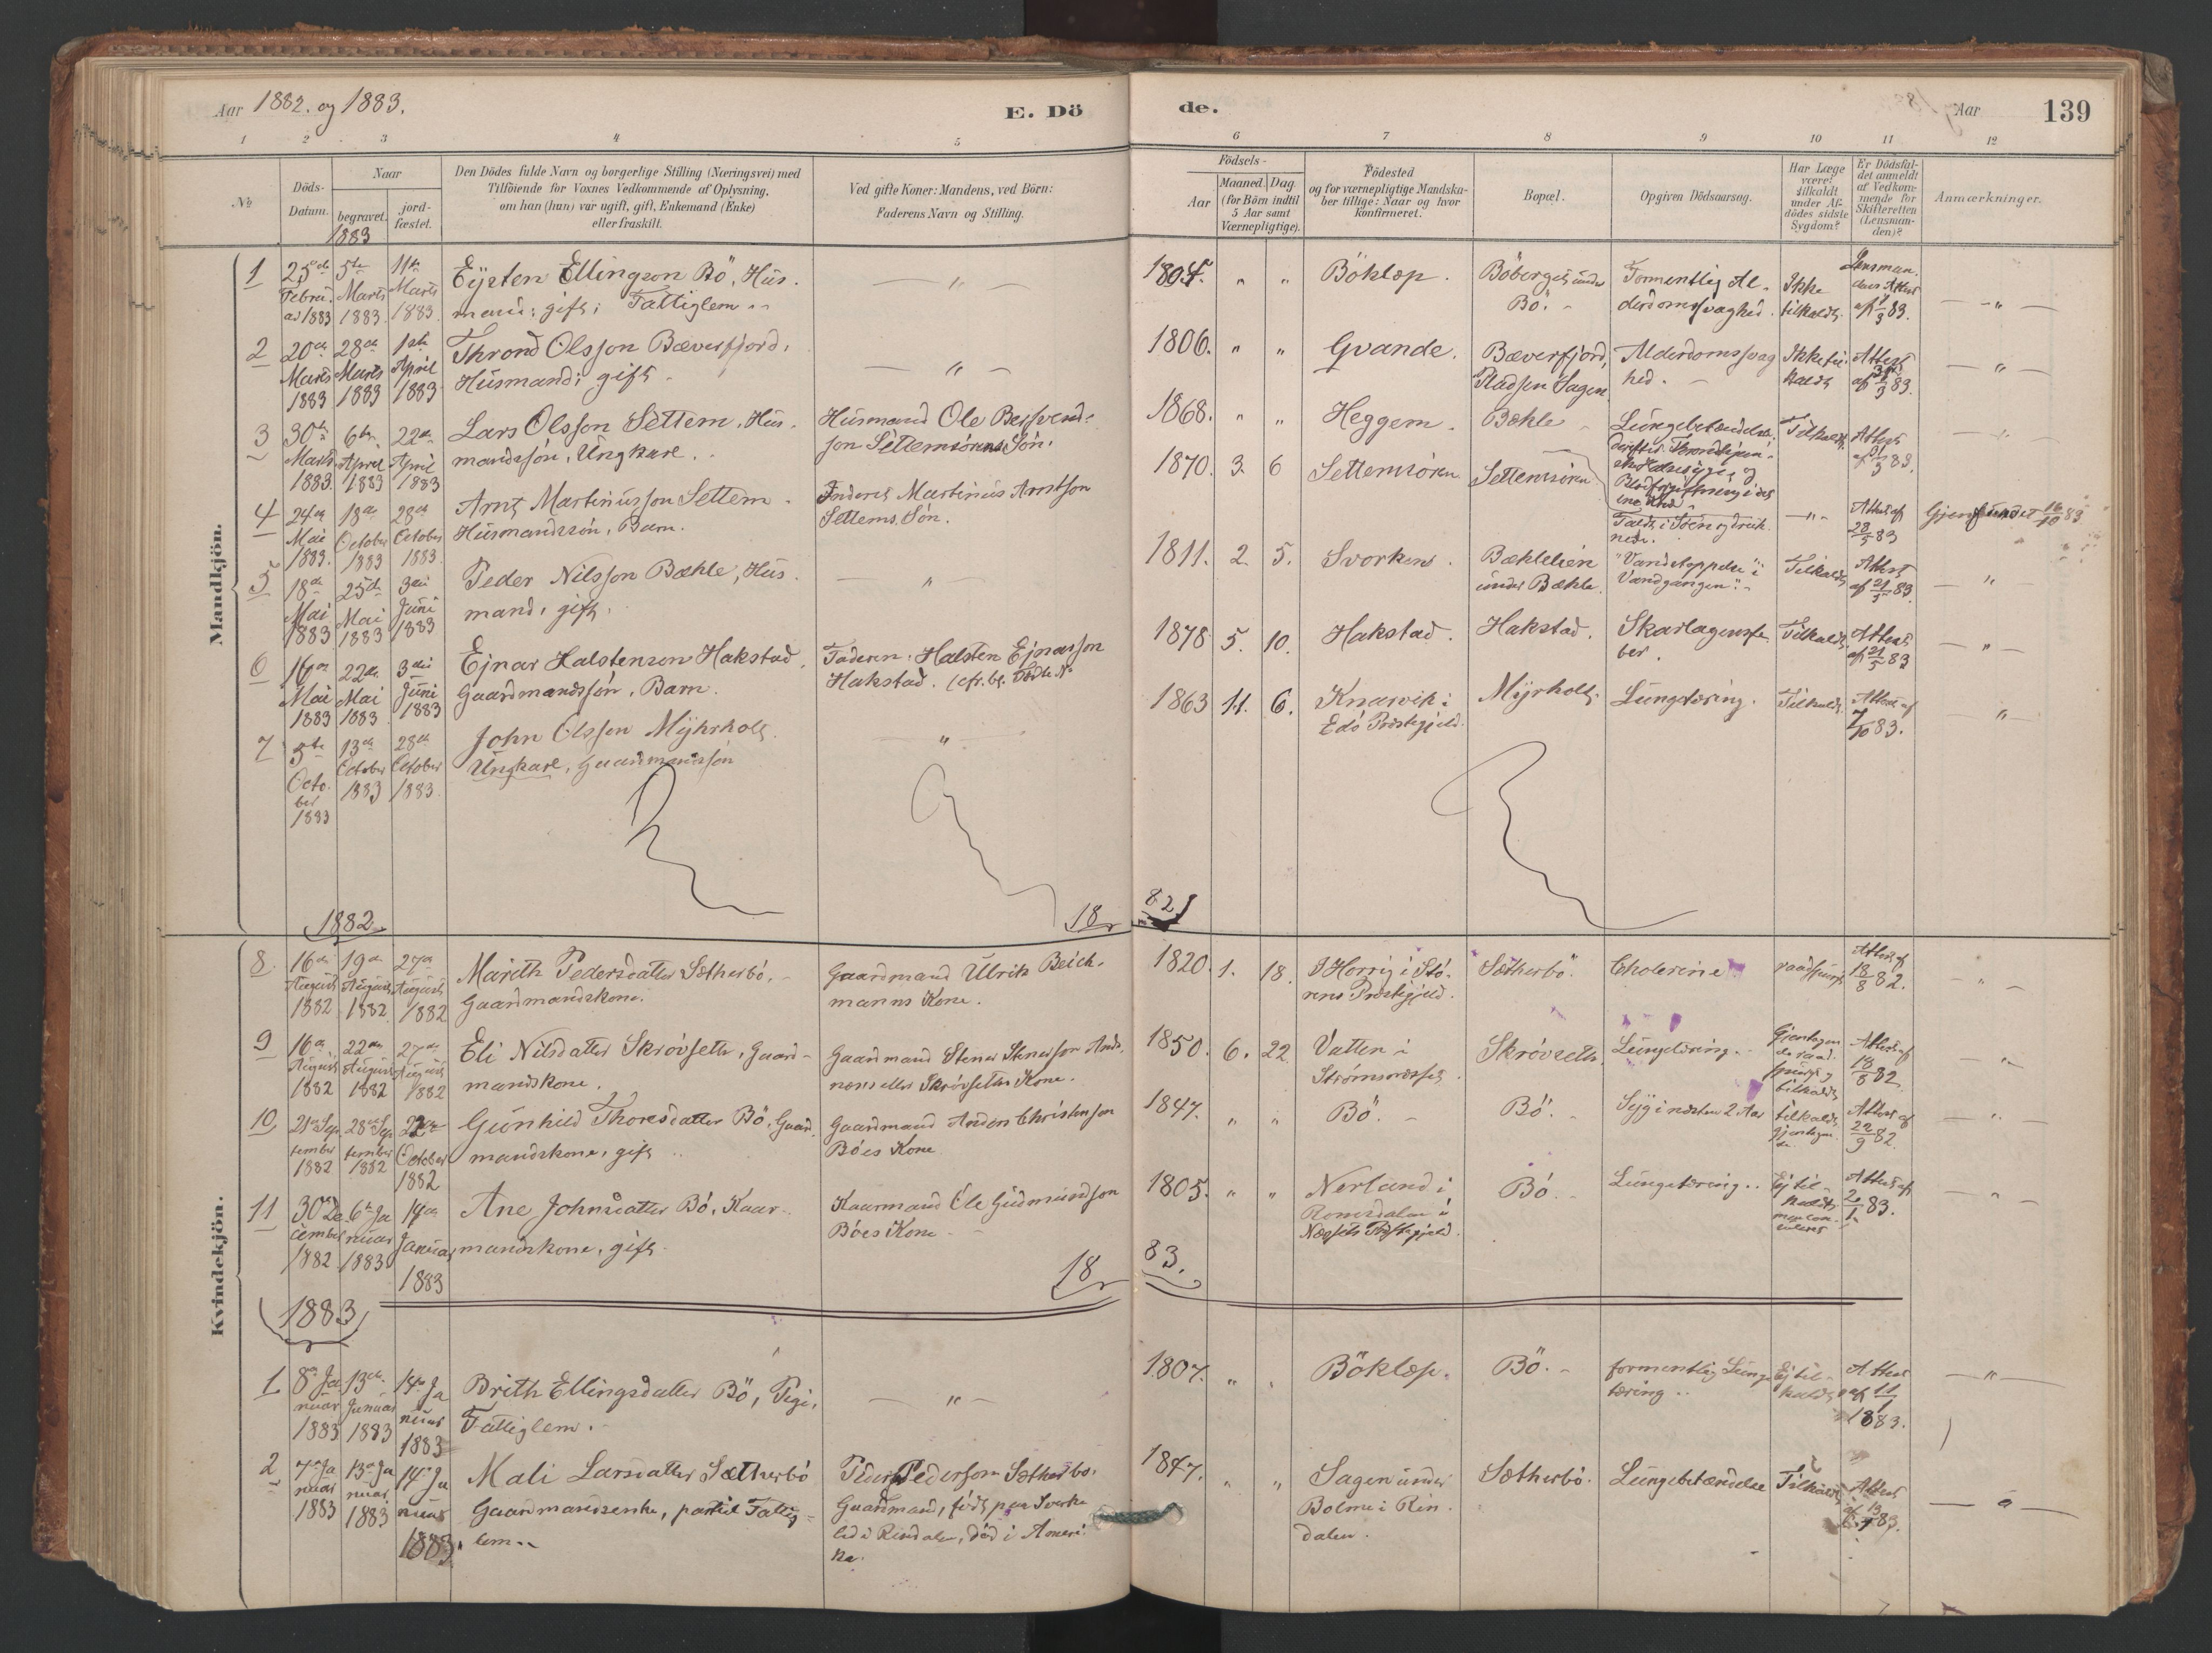 Aar 1882. og 1883.
E. Dö
de.
Aar
139
1 2 3 4 5 6 7 8 9 10 11 12
No
Döds-Datum.
Naar
begravet.
jord-fæstet.
Den Dödes fulde Navn og borgerlige Stilling (Næringsvei) med
Tilföiende for Voxnes Vedkommende af Oplysning,
om han (hun) var ugift, gift, Enkemand (Enke)
eller fraskilt.
Ved gifte Koner: Mandens, ved Börn:
Faderens Navn og Stilling.
Födsels-
Aar
Maaned. Dag
(for Börn indtil
5 Aar samt
Værnepligtige).
Födested
og for værnepligtige Mandska-
ber tillige: Naar og hvor
konfirmeret.
Bopæl.
Opgiven Dödsaarsag.
Har Læge
været
tilkaldt
under Af-
dödes sidste
Sygdom?
Er Dödsfal-
det anmeldt
af Vedkom-
mende for
Skifteretten
(Lensman-
den)?
Anmærkninger.
Mandkjön.
1883
1 25de Februar 1883 5te Marts 1883 11te Marts 1883
Eysten Ellingson Bö, Hus-
mand; gift; Fattiglem
1804. " " Böklep. Böberget under
Bö. Formentlig Al-
derdomssvaghed. Ikke
tilkaldt. Lensman-
dens Attest
af 7/3 83.
2 20de Marts 1883 28de Marts 1883 1ste April 1883
Thrond Olsson Bæverfjord,
Husmand; gift
1806. " " Gvande. Bæverfjord,
Pladsen Sagen Alderdomssvag
hed. Ikke til-
kaldt Attest
af 31/3 83.
3 30te Marts 1883. 6te April 1883 22de April 1883
Lars Olsson Settem, Hus-
mandssön, Ungkarl.
Husmand Ole Bersvend-
son Settemsörens Sön.
1868. " " Heggem. Bækle Lungebetændelse,
Tilkaldt. Attest
af 31/3 83.
4 24de Mai 1883. 18de October 1883 28de October 1883.
Arnt Martinusson Settem
Husmandssön, Barn.
Inderst Martinus Arntson
Settems Sön.
1870. 3. 6 Settemsören Settemsören
Faldt i Söen og druk-
nede. Attest af
28/5 83 Gjenfundet 16/10 83
5 18de Mai 1883 25de Mai 1883 3die Juni 1883
Peder Nilsson Bækle, Hus-
mand, gift.
1811. 2. 5. Svorkens. Bæklelien
under Bækle. "Vandstoppelse i
Vandgangen". Tilkaldt Attest
af 21/5 83.
6 16de Mai 1883 22de Mai 1883 3die Juni 1883
Ejnar Halstenson Hakstad.
Gaardmandssön, Barn.
Faderen: Halsten Ejnarsson
Hakstad. (cfr.
1878 5. 10. Hakstad. Hakstad. Skarlagensfe-
ber. Tilkaldt. Attest
af 21/5 83
7 5te October 1883 13de October 1883 28de October 1883.
John Olsson Myhrholt.
Ungkarl, Gaardmandssön
1863 11. 6. Knarvik i
Edö Præstegjeld. Myrholt. Lungetæring. Tilkaldt. Attest af
7/10 83.
1882
18 82
Kvindekjön.
8. 16de August 1882 19de August 1882. 27de August 1882
Marith Pedersdatter Sætherbö,
Gaardmandskone.
Gaardmand Ulrik Beich-
manns Kone.
1820. 1. 18. I Horrig i Stö-
rens Præstegjeld. Sætherbö. Cholerine raadspurgt Attest af
18/8 82.
9 16de August 1882 22de August 1882 27de August 1882
Eli Nilsdatter Skrövseth, Gaard-
mandskone.
Gaardmand Stener Stenersson
Skrövseths Kone.
1850. 6. 22 Vatten i
Skrövseth. Lungetæring. Gjentagen-
de raad-
spurgt og
tilkaldt Attest af
18/8 82
10 21de September 1882 28de September 1882 22de October 1882
Gunhild Thoresdatter Bö, Gaard-
mandskone, gift
Gaardmand Anders Christenson
Böes Kone
1847. " " Bö. Bö. Syg i næsten 2 Aar tilkaldt
gjentagen-
de Attest af
22/9 82.
11 30de December 1882 6te Januar 1883 14de Januar 1883
Ane Johnsdatter Bö, Kaar-
mandskone, gift.
Kaarmand Ole Gudmundson
Böes Kone
1805. " " Nerland i
Romsdalen i
Næssets Præstegjeld. Bö. Lungetæring. Ej til-
kaldt
Attest af
2/1 83.
18 83.
1883
1 8de Januar 1883 13de Januar 1883 14de Januar 1883
Brith Ellingsdatter Bö, Pige,
Fattiglem.
1807. Böklep. Bö. formentlig Lunge-
tæring. Ej til-
kaldt Attest
af 11/1
1883.
2 7de Januar 1883 13de Januar 1883 14de Januar 1883.
Mali Larsdatter Sætherbö
Gaardmandsenke, partiel Fattig-
lem.
Peder Pederson Sætherbö,
Gaardmand, födt paa
i Rindalen, död i Ameri-
ka.
1847. " " Sagen under
Bolme i Rin-
dalen. Sætherbö. Lungebetændelse Tilkaldt Attest
af 13/1 83.